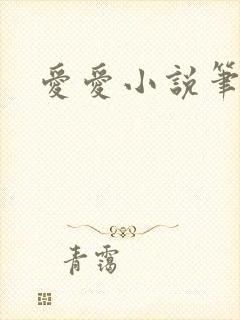 愛愛小說筆
青靄